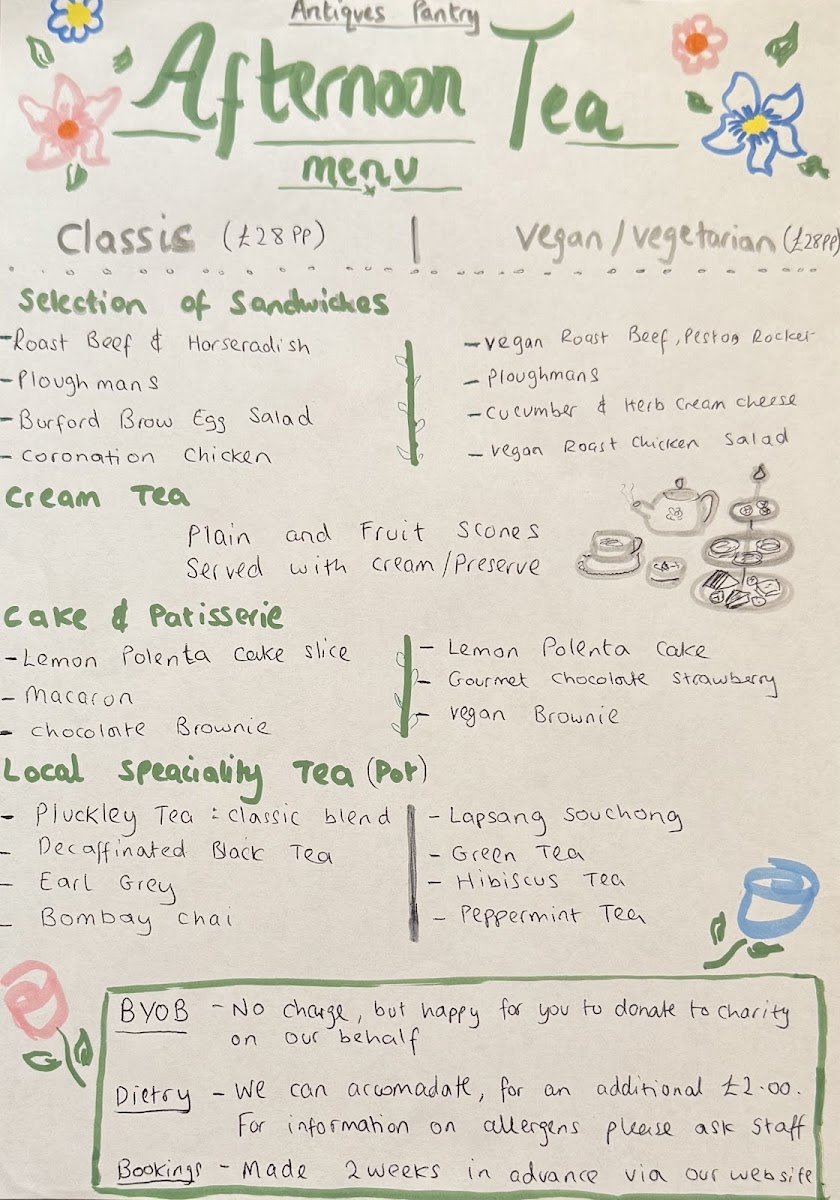 Antiques Pantry
Afternoon Tea
menu
Classis (£28PP)
vegan/vegetarian (£28PP)
Selection of Sandwiches
-Roast Beef & Horseradish
-Ploughmans
-Burford Brow Egg Salad
-Coronation Chicken
-vegan Roast Beef, Pesto& Rocket
-Ploughmans
-Cucumber & Herb Cream cheese
-vegan Roast Chicken Salad
Cream Tea
Plain and Fruit Scones
Served with cream/Preserve
Cake & Patisserie
-Lemon Polenta cake slice
-Macaron
-chocolate Brownie
-Lemon Polenta Cake
-Gourmet Chocolate Strawberry
-vegan Brownie
Local Speaciality Tea (Pot)
-Pluckley Tea : classic blend
-Decaffinated Black Tea
-Earl Grey
-Bombay chai
-Lapsang souchong
-Green Tea
-Hibiscus Tea
-Peppermint Tea
BYOB - No charge, but happy for you to donate to charity
on our behalf
Dietry - we can accomadate, for an additional £2.00.
For information on allergens please ask staff
Bookings - Made 2weeks in advance via our website